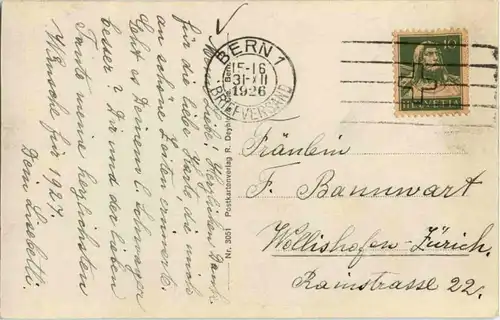 Meine Liebe! Herzlichen Dank
für die liebe Karte, die mich
an schöne Zeiten erinnert.
Geht es Deinem l. Schwager
besser? Dir und der lieben
Tante meine herzlichsten
Wünsche für 1927.
Dein Liesbetli.
Nr. 3051 Postkartenverlag R. Deyhle, Bern
BERN 1
15-16
31.XII
1926
BRIEFVERSAND
10
HELVETIA
Fräulein
F. Bannwart
Wollishofen-Zürich.
Rainstrasse 22.